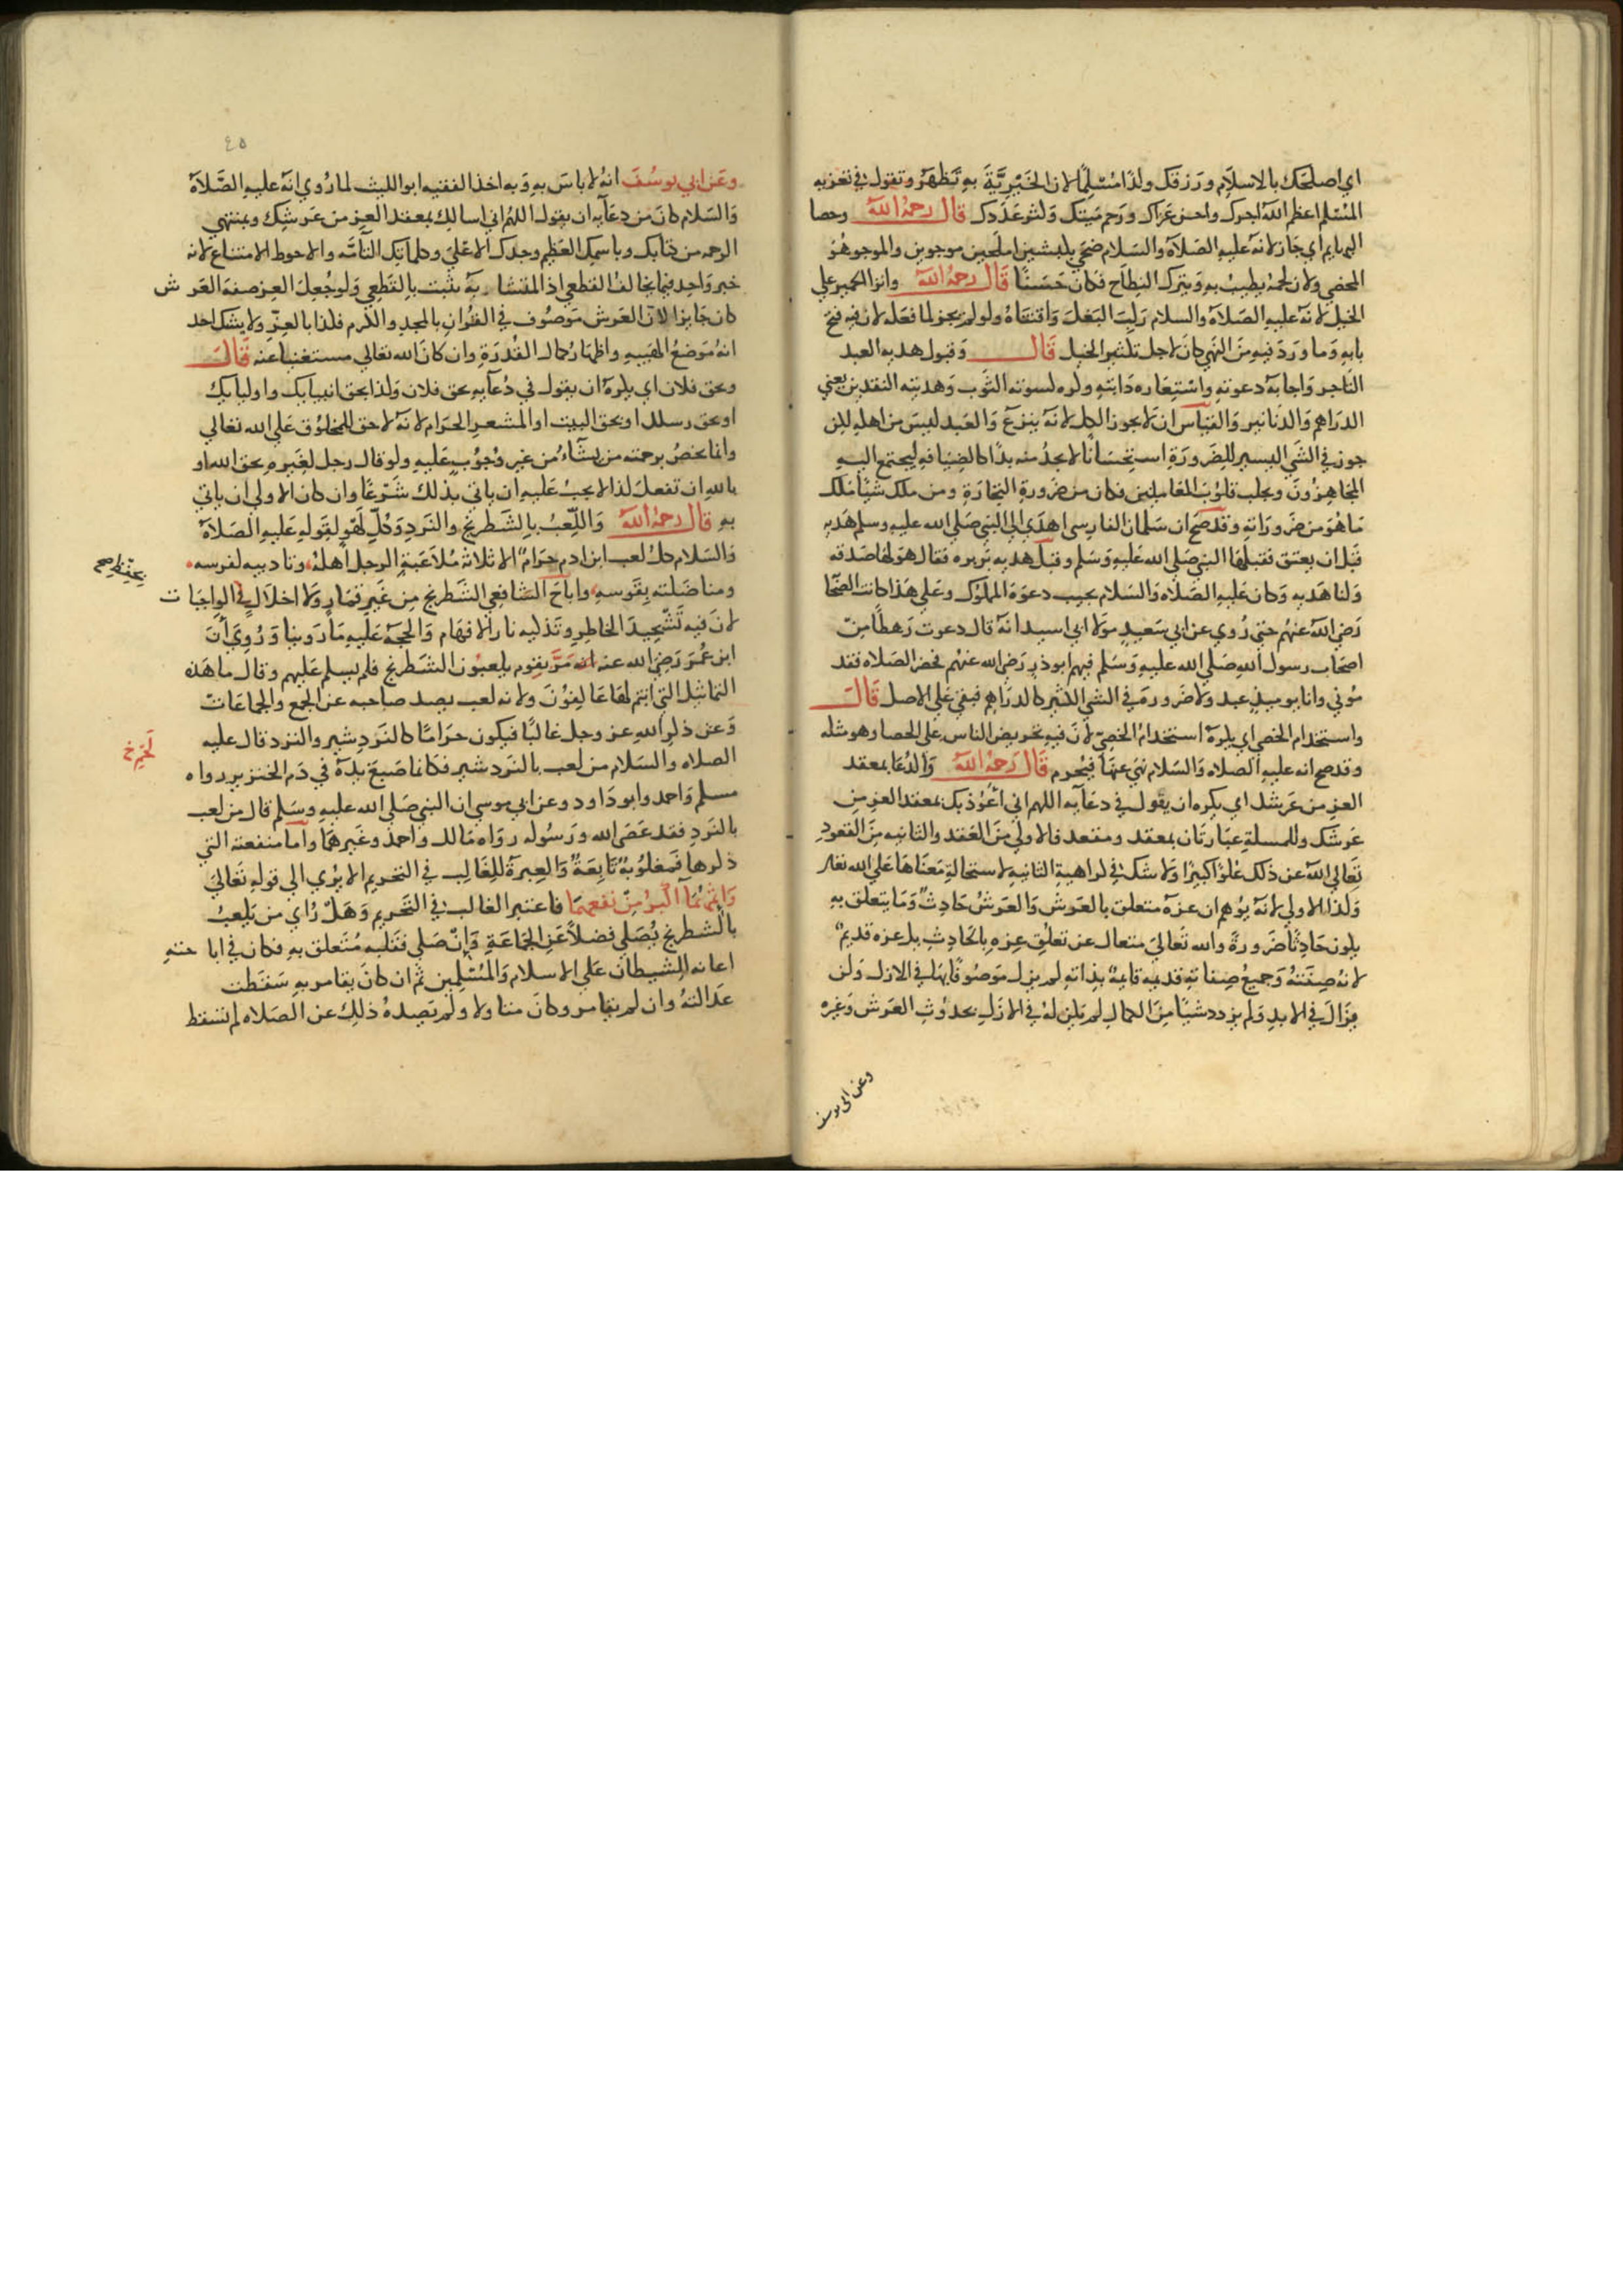 اي اصلحك بالاسلام ورزقك ولدا مسلما لان الخيرية به تظهر وتقول في تعزيه
المسلم اعظم الله اجرك واحسن عزاك ورحم ميتك وكثر عددك قال رحمه الله وخصا
البهايم اي جاز لانه عليه الصلاة والسلام ضحى بكبشين املحين موجوين والموجو هو
المخصي ولان لحمه يطيب به ويترك النطاح فكان حسنا قال رحمه الله وانزا الحمير علي
الخيل لانه عليه الصلاة والسلام ركب البغل واقتناه ولو لم يجز لما فعله لان فيه فتح
بابه وما ورد فيه من النهي كان لاجل تكثير الخيل قال وقبول هديه العبد
التاجر واجابة دعوته واستعاره دابته وكره كسوته الثوب وهديته النقدين يعني
الدراهم والدنانير والقياس ان لا يجوز الكل لانه تبرع والعبد ليس من اهله لكن
جوز في الشي اليسير للضرورة استحسانا لانه لا يجد منه بدا كالضيافه ليجتمع اليه
المجاهزون ويجلب قلوب المعاملين فكان من ضرورة التجارة ومن ملك شيا ملك
ما هو من ضروراته وقد صح ان سلمان الفارسي اهدي الي النبي صلي الله عليه وسلم هديه
قبل ان يعتق فقبلها النبي صلي الله عليه وسلم وقبل هديه بريره فقال هو لها صدقه
ولنا هديه وكان عليه الصلاه والسلام يجيب دعوة المملوك وعلي هذا كانت الصحا
رضي الله عنهم حتي روي عن ابي سعيد مولا ابي اسيد انه قال دعوت رهطا من
اصحاب رسول الله صلي الله عليه وسلم فيهم ابو ذر رضي الله عنهم فحضر الصلاه فقد
موني وانا يوميذ عبد ولا ضرورة في الشي الكثير كالدراهم فبقي علي الاصل قال
واستخدام الخصي اي يكره استخدام الخصي لان فيه تحريض الناس علي الخصا وهو مثله
وقد صح انه عليه الصلاه والسلام نهي عنها فيحرم قال رحمه الله والدعا بمعقد
العز من عرشك اي يكره ان يقول في دعايه اللهم اني اعوذ بك بمعقد العز من
عرشك وللمسلة عبارتان بمعقد ومقعد فالاولي من العقد والثانيه من القعود
تعالي الله عن ذلك علوا كبيرا ولا شك في كراهية الثانيه لاستحالة معناها علي الله تعالي
وكذا الاولي لانه يوهم ان عزه متعلق بالعرش والعرش حادث وما يتعلق به
يكون حادثا ضرورة والله تعالي متعال عن تعلق عزه بالحادث بل عزه قديم
لانه صفته وجميع صفاته قديمه قايمة بذاته لم يزل موصوفا بها في الازل ولن
يزال في الابد ولم يزدد شيا من الكمال لم يكن له في الازل بحدوث العرش وغيره
وعن ابي يوسف
٤٥
وعن ابي يوسف انه لا باس به وبه اخذ الفقيه ابو الليث لما روي انه عليه الصلاة
والسلام كان من دعايه ان يقول اللهم اني اسالك بمعقد العز من عرشك وبمنتهي
الرحمه من كتابك وباسمك العظيم وجدك الاعلي وكلماتك التامه والاحوط الامتناع لانه
خبر واحد فيما يخالف القطعي اذ المتشابه يثبت بالقطعي ولو جعل العز صفة العرش
كان جايزا لان العرش موصوف في القران بالمجد والكرم فكذا بالعز ولا يشك احد
انه موضع الهيبه واظهار كمال القدرة وان كان الله تعالي مستغنيا عنه قال
وبحق فلان اي يكره ان يقول في دعايه بحق فلان وكذا بحق انبيايك واوليايك
او بحق رسلك او بحق البيت او المشعر الحرام لانه لا حق للمخلوق علي الله تعالي
وانما يخص برحمته من يشاء من غير وجوب عليه ولو قال رجل لغيره بحق الله او
بالله ان تفعل كذا لا يجب عليه ان ياتي بذلك شرعا وان كان الاولي ان ياتي
به قال رحمه الله واللعب بالشطرنج والنرد وكل لهو لقوله عليه الصلاة
والسلام كل لعب ابن ادم حرام الا ثلاثة ملاعبة الرجل اهله وتاديبه لفرسه
ومناضلته بقوسه واباح الشافعي الشطرنج من غير قمار ولا اخلال في الواجبات
لان فيه تشحيذ الخاطر وتذكيه نار الافهام والحجة عليه ما روينا وروي ان
ابن عمر رضي الله عنه انه مر بقوم يلعبون الشطرنج فلم يسلم عليهم وقال ما هذه
التماثيل التي انتم لها عاكفون ولانه لعب يصد صاحبه عن الجمع والجماعات
وعن ذكر الله عز وجل غالبا فيكون حراما كالنردشير والنرد قال عليه
الصلاه والسلام من لعب بالنردشير فكانما صبغ يده في دم الخنزير رواه
مسلم واحمد وابو داود وعن ابي موسي ان النبي صلي الله عليه وسلم قال من لعب
بالنرد فقد عصي الله ورسوله رواه مالك واحمد وغيرهما واما منفعته التي
ذكرها فمغلوبة تابعة والعبرة للغالب في التحريم الا يري الي قوله تعالي
واثمهما اكبر من نفعهما فاعتبر الغالب في التحريم وهل راي من يلعب
بالشطرنج يصلي فضلا عن الجماعة وان صلي فقلبه متعلق به فكان في اباحته
اعانه الشيطان علي الاسلام والمسلمين ثم ان كان يقامر به سقطت
عدالته وان لم يقامر وكان متاولا ولم يصده ذلك عن الصلاه لم تسقط